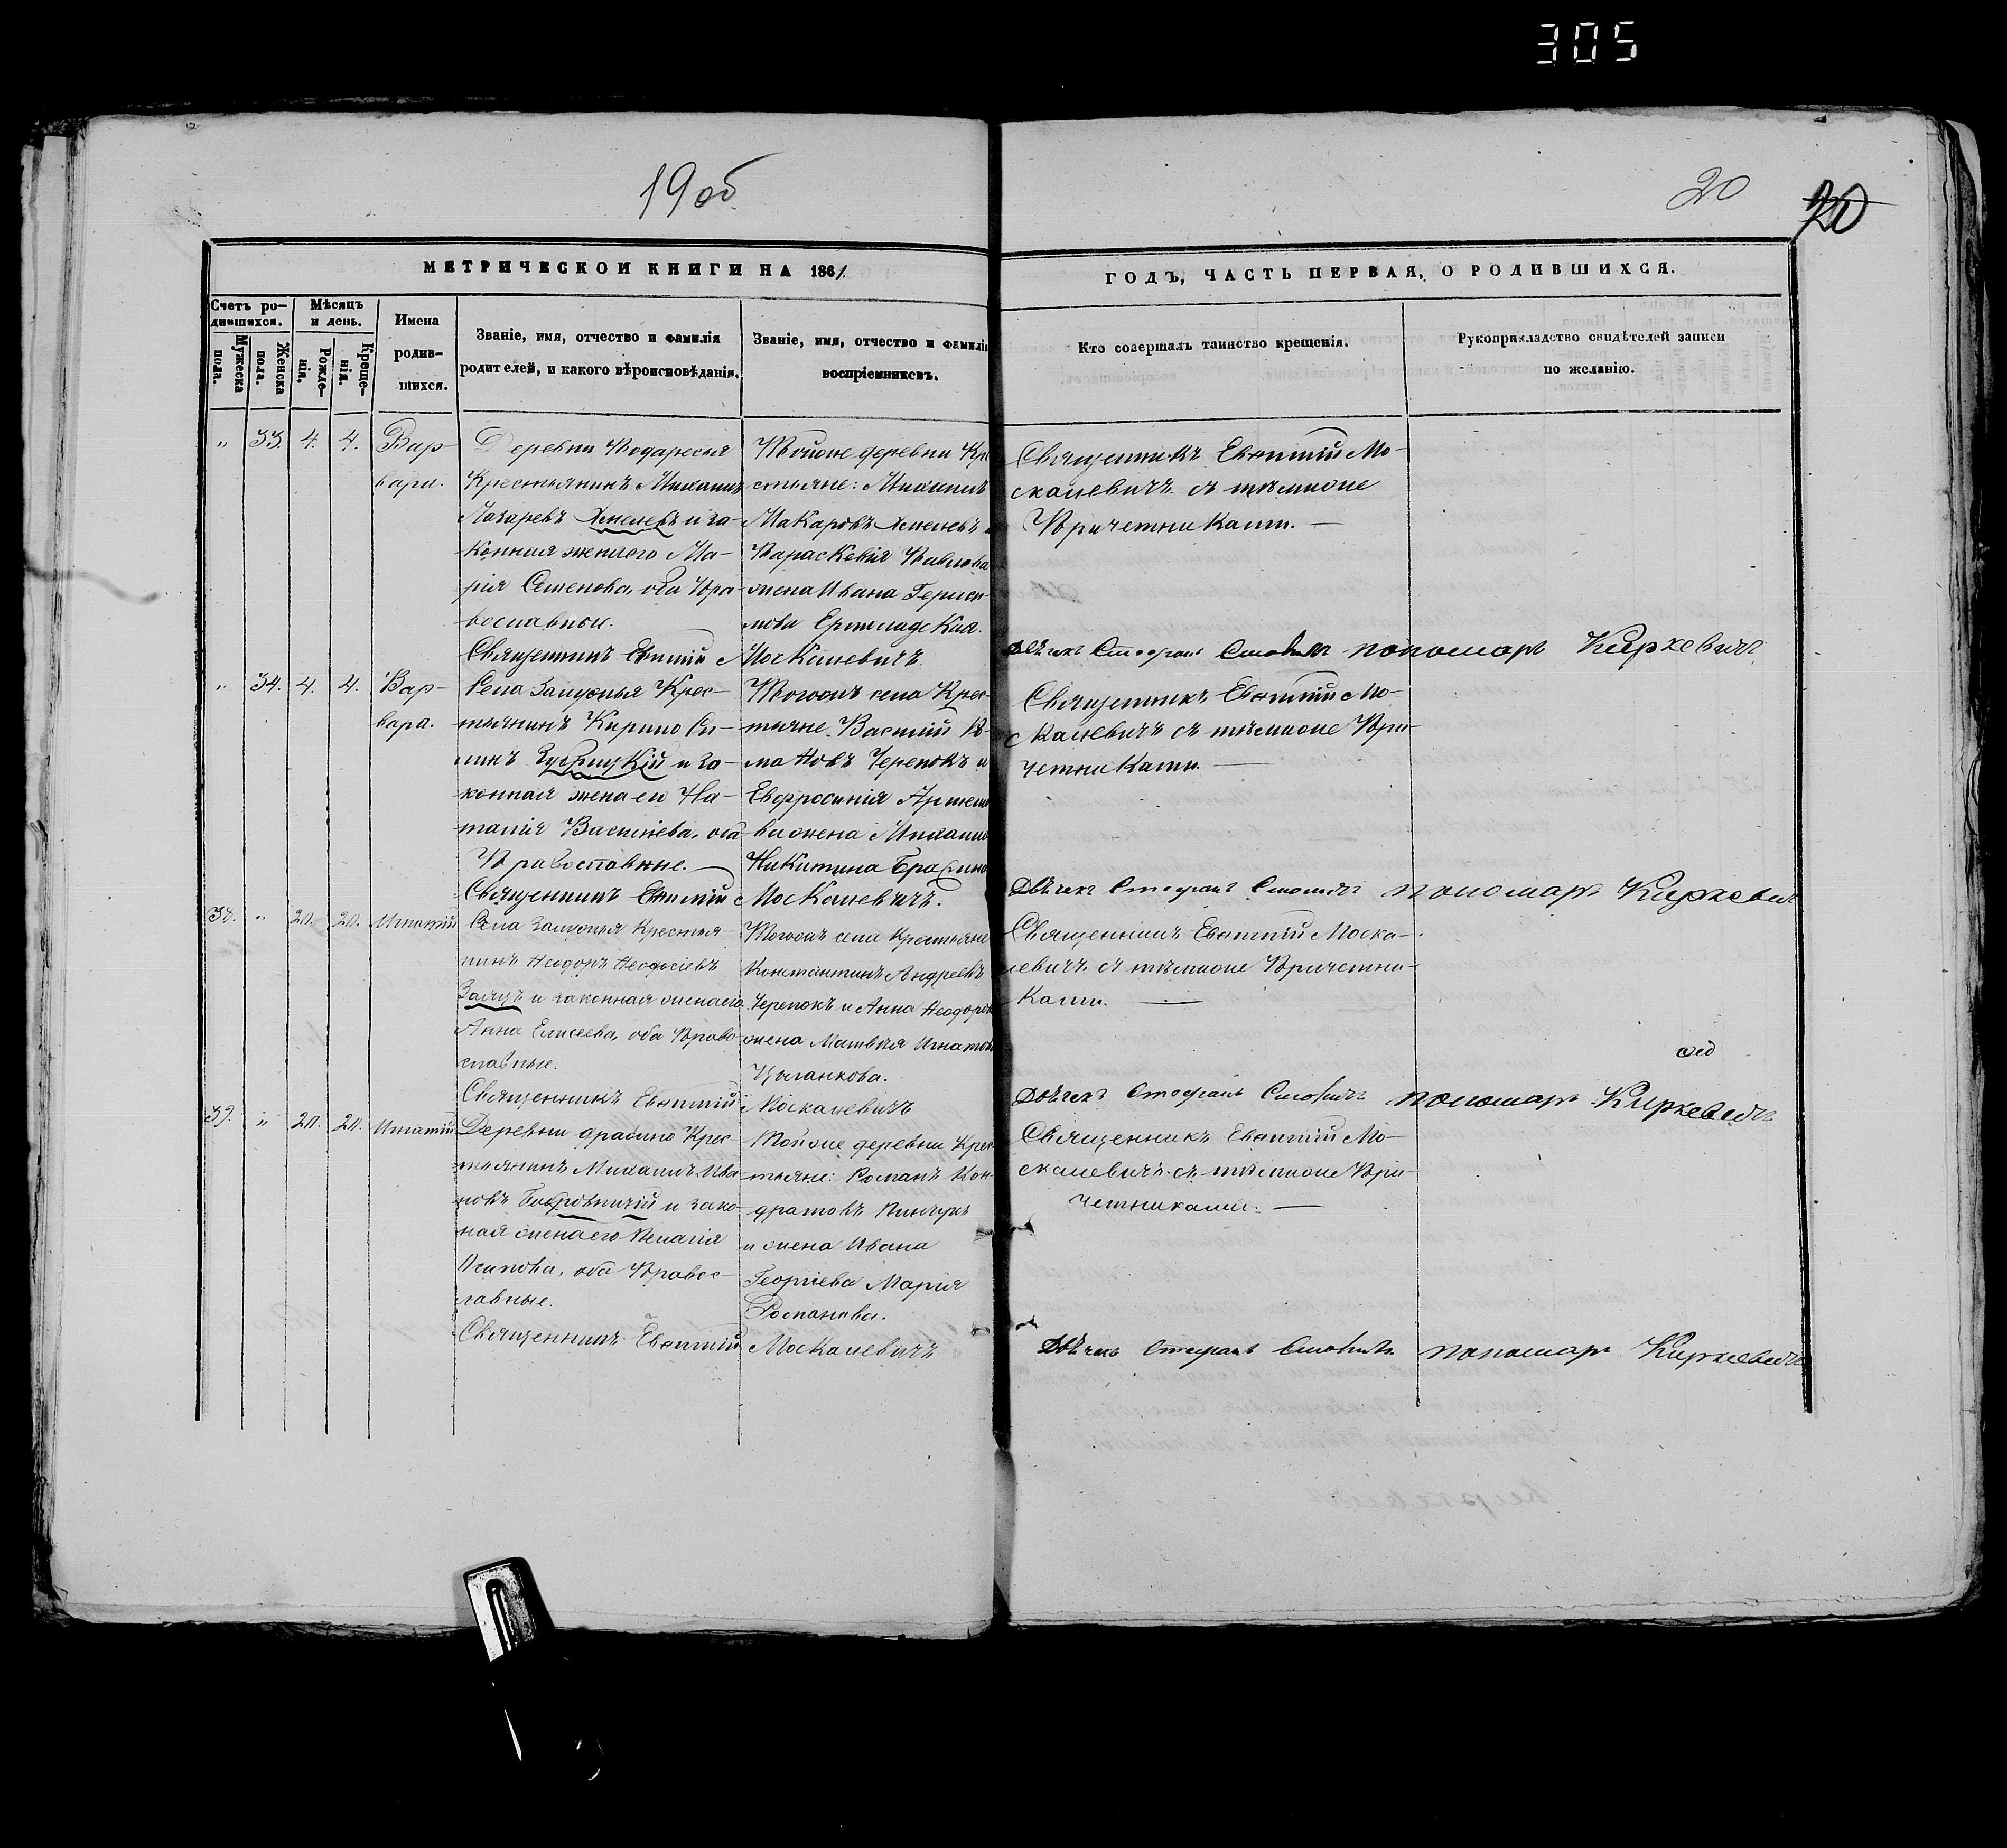 305
19 об
20
20
МЕТРИЧЕСКОЙ КНИГИ НА 1861
ГОДЪ, ЧАСТЬ ПЕРВАЯ, О РОДИВШИХСЯ.
Счетъ ро-
дившихся.
Мужеска
пола.
Женска
пола.
Мѣсяцъ
и день.
Рожде-
нія.
Креще-
нія.
Имена
родив-
шихся.
Званіе, имя, отчество и фамилія
родителей, и какого вѣроисповѣданія.
Званіе, имя, отчество и фамилія
воспріемниковъ.
Кто совершалъ таинство крещенія.
Рукоприкладство свидѣтелей записи
по желанію.
" 33. 4. 4.
Вар-
вара.
Деревни
Крестьянинъ Михаилъ
Лазаревъ и за-
конная жена его Ма-
рія Семенова, оба Пра-
вославные.
Священникъ Евѳимій Москалевичъ.
Тойже деревни Кре
стьяне: Михаилъ
Макаровъ
Параскевія Павлова
жена Ивана
Священникъ Евѳимій Мо-
скалевичъ съ тѣмиже
Причетниками. —
Дьячекъ Стефанъ пономарь Киркевичъ
" 34. 4. 4.
Вар-
вара.
Села Залужья Крес-
тьянинъ Кирило Си-
и за-
конная жена его На-
талія Васильева, оба
Православные. —
Священникъ Евѳимій Москалевичъ.
Тогожъ села Крес-
тьяне Василій
Черепокъ и
Евфросинія Артемо
ва жена Михаила
Никитина
Священникъ Евѳимій Мо-
скалевичъ съ тѣмиже При-
четниками. —
Дьячекъ Стефанъ пономарь Киркевичъ
38. " 20. 20. Игнатій
Села Залужья Крестья-
нинъ Ѳеодоръ Ѳеодосіевъ
Заяцъ и законная жена его
Анна Елисеева, оба Право-
славные.
Священникъ Евѳимій Москалевичъ
Тогожъ села Крестьяне
Константинъ Андреевъ
Черепокъ и Анна Ѳеодоров
жена Матвѣя Игнатов
Цыганкова.
Священникъ Евѳимій Моска-
левичъ съ тѣмиже Причетни-
ками. —
Дьячекъ Стефанъ пономарь Киркевичъ
39. " 20. 20. Игнатій
Деревни Крес
тьянинъ Михаилъ Ива
новъ и закон-
ная жена его Пелагія
Осипова, оба Правос-
лавные.
Священникъ Евѳимій Москалевичъ
Тойже деревни Крес
тьяне: Романъ Кон
дратовъ Пинчукъ
и жена Ивана
Георгіева Марія
Романова.
Священникъ Евѳимій Мо-
скалевичъ съ тѣмиже При-
четниками. —
Дьячекъ Стефанъ пономарь Киркевичъ